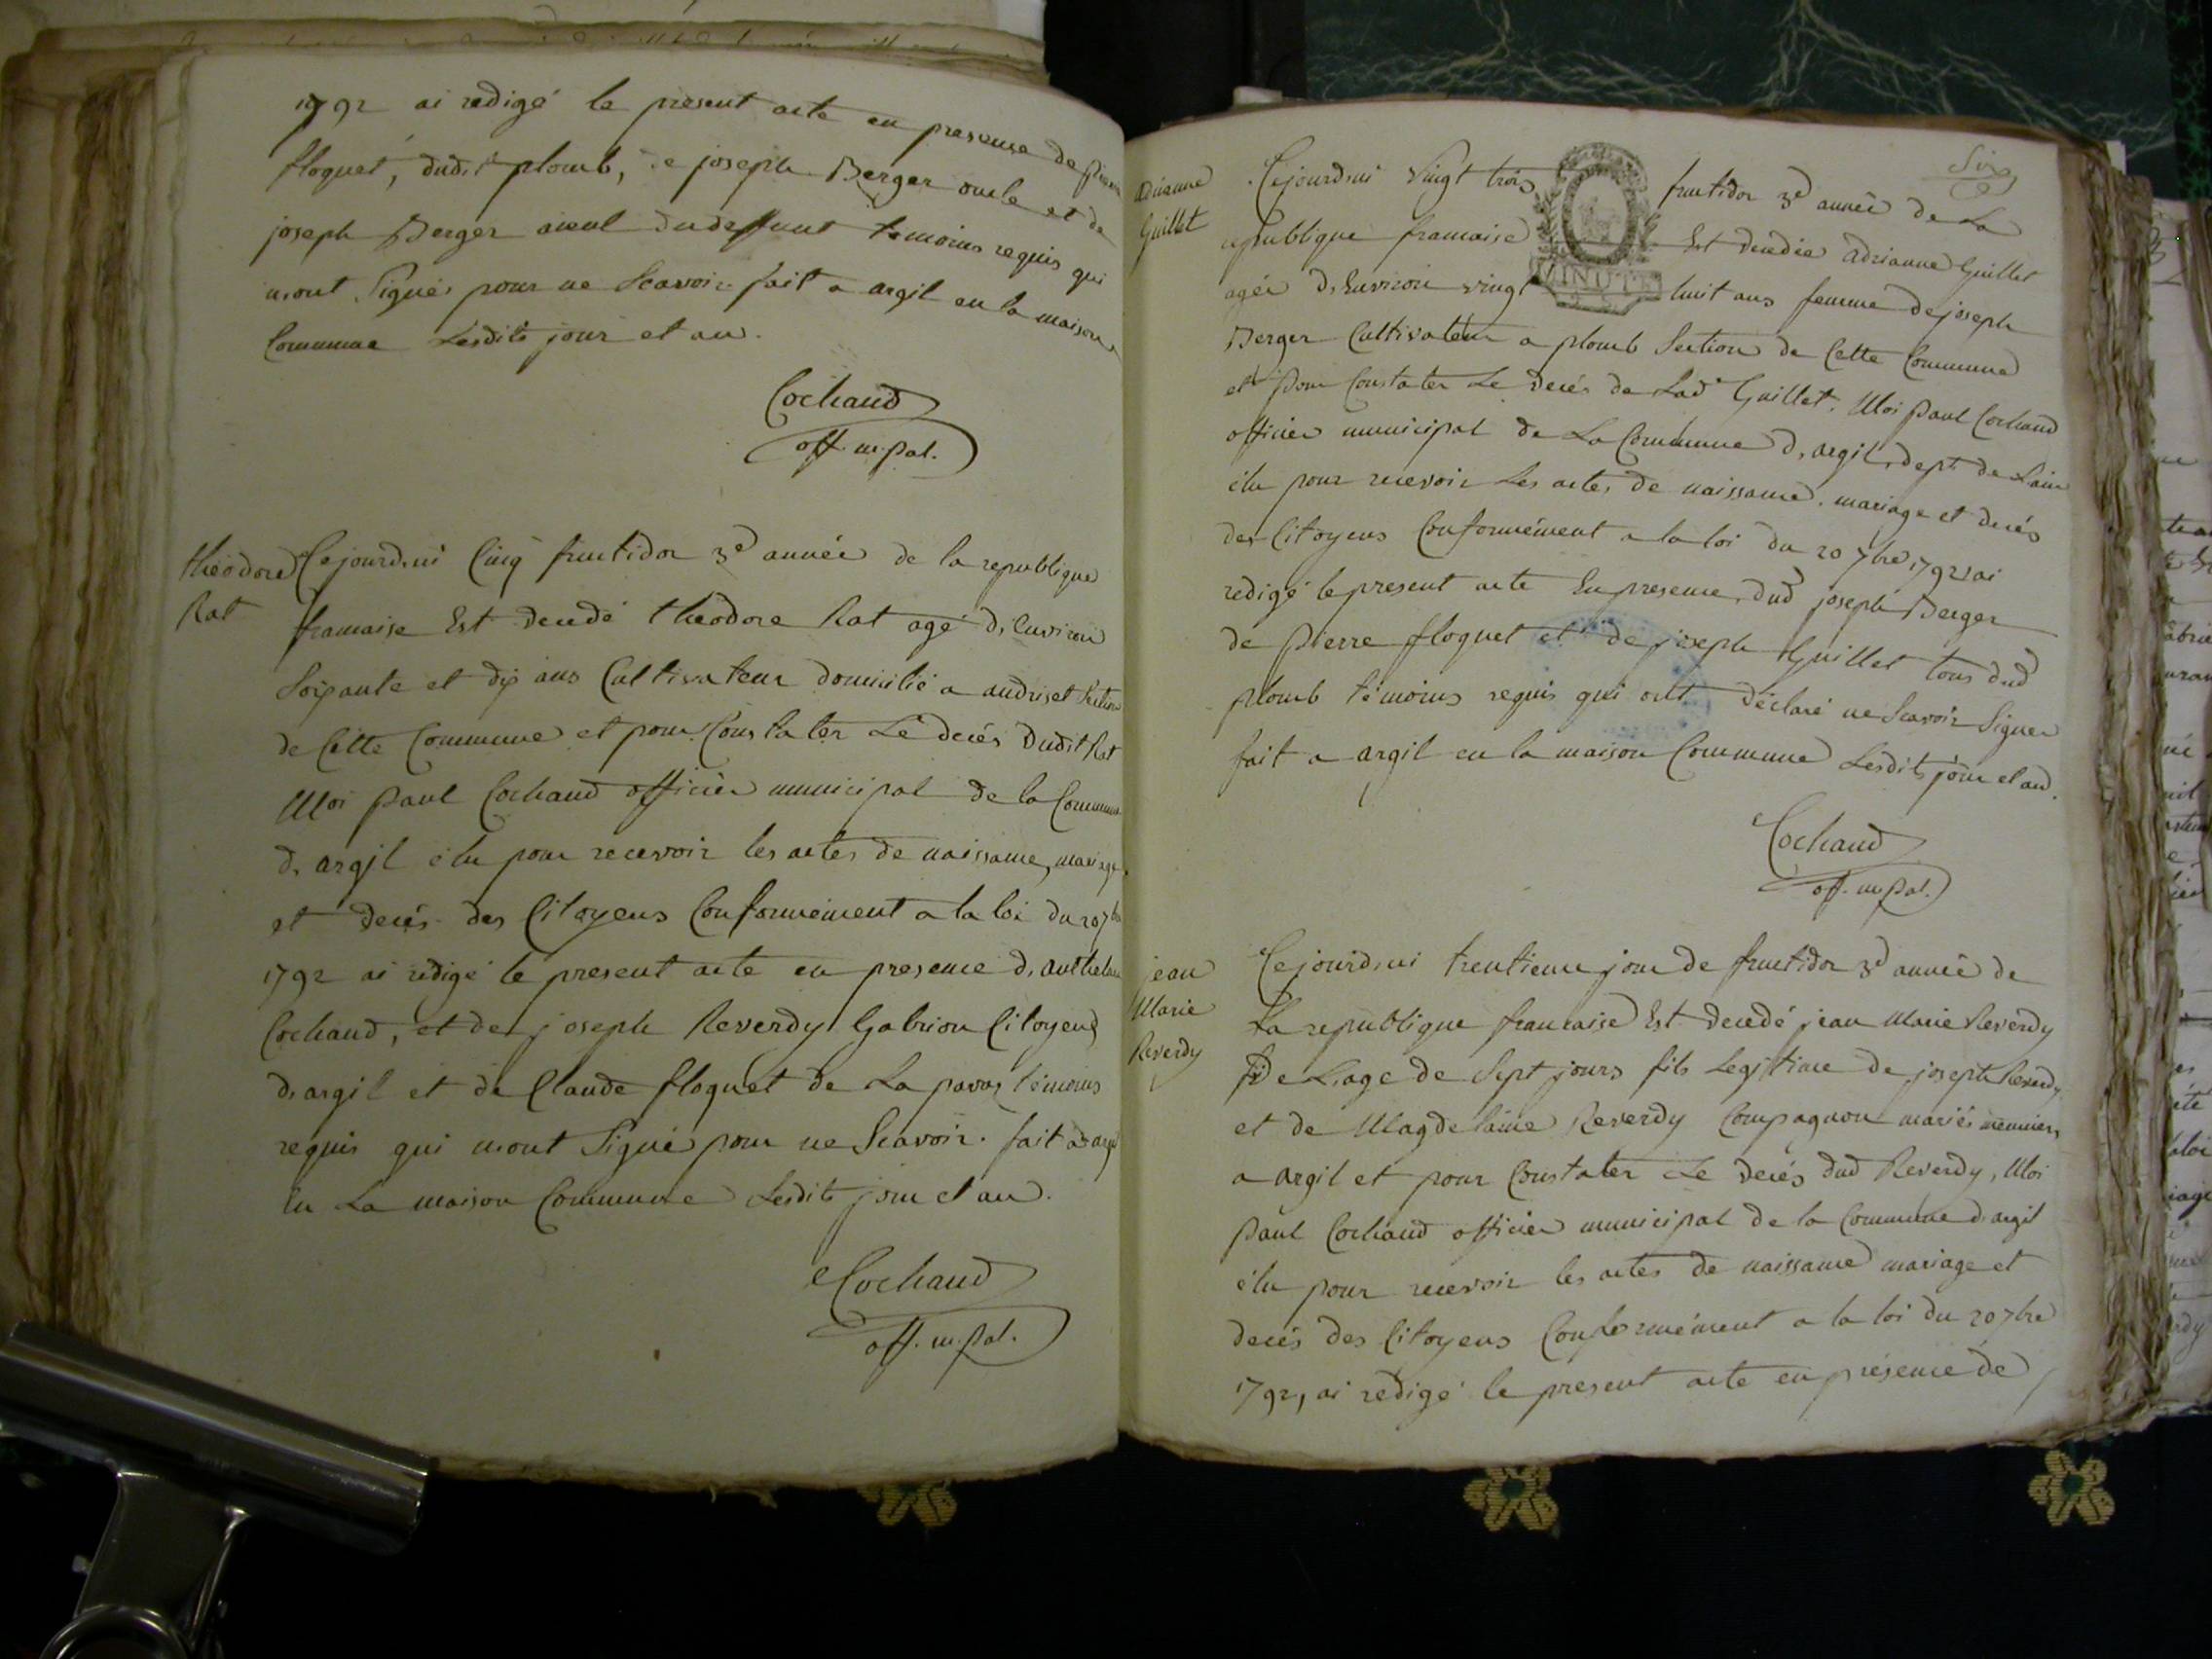 1792 ai redigé le present acte en presence de pierre
floquet, dudit plomb, de joseph Berger oncle et de
joseph Berger aieul dudeffunt temoins requis qui
n,ont Signés pour ne Scavoir fait a argil en la maison
Commune Lesdits jour et an.
Cochaud
off. m.pal.
théodore
Rat
Cejourd,ui Cinq fructidor 3e année de la republique
francaise Est decedé théodore Rat agé d,Environ
Soixante et dix ans Cultivateur domicilié a andriset Section
de Cette Commune et pour Constater Le decés Dudit Rat
Moi paul Cochaud officier municipal de la Commune
d,argil élu pour recevoir les actes de naissance, mariage
et decés des Citoyens Conformément a la loi du 20 7bre
1792 ai redigé le present acte en presence d,anthelme
Cochaud, et de joseph Reverdy Gabrion Citoyens
d,argil et de Claude floquet de La pavaz témoins
requis qui n,ont Signé pour ne Scavoir. fait a argil
En La maison Commune Lesdits jour et an.
Cochaud
off. m.pal.
Six
adrianne
Guillet
Cejourd,ui Vingt trois fructidor 3e année de La
republique francaise Est decedée adrianne Guillet
agée d,Environ vingt huit ans femme de joseph
MINUTE
Berger Cultivateur a plomb Section de Cette Commune
et pour Constater Le decés de Lade Guillet, Moi paul Cochaud
officier municipal de La Commune d,argil, dept de Lain
élu pour recevoir Les actes de naissance, mariage et decés
des Citoyens Conformément a la loi du 20 7bre 1792, ai
redigé le present acte En presence, dud joseph Berger
de pierre floquet et de joseph Guillet tous dud
plomb témoins requis qui ont déclaré ne Scavoir Signer
fait a argil en la maison Commune Lesdits jour et an.
Cochaud
off. m.pal.
jean
Marie
Reverdy
Cejourd,ui trentieme jour de fructidor 3e année de
La republique francaise Est decedé jean Marie Reverdy
De L,age de Sept jours fils Legitime de joseph Reverdy
et de Magdelaine Reverdy Compagnon mariés meuniers
a argil et pour Constater Le decés dud Reverdy, Moi
paul Cochaud officier municipal de la Commune d,argil
élu pour recevoir les actes de naissance mariage et
decés des Citoyens Conformément a la loi du 20 7bre
1792, ai redigé le present acte en présence de